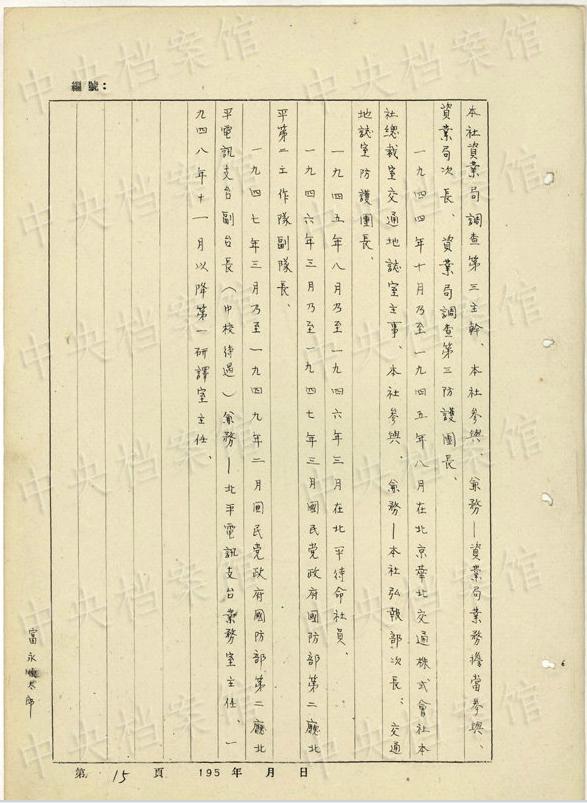 編號：
本社資業局調查第三主幹、本社參與、兼務—資業局業務擔當參與、
資業局次長、資業局調查第三防護團長、
一九四四年十月乃至一九四五年八月在北京華北交通株式會社本
社總裁室交通地誌室主事、本社參與、兼務—本社弘報部次長；交通
地誌室防護團長、
一九四五年八月乃至一九四六年三月在北平待命社員、
一九四六年三月乃至一九四七年三月國民党政府國防部第二廳北
平第二工作隊副隊長、
一九四七年三月乃至一九四九年二月國民党政府國防部第二廳北
平電訊支台副台長（中校待遇）兼務—北平電訊支台業務室主任、一
九四八年十一月以降第一研譯室主任、
富永順太郎
第 15 頁 195 年 月 日
中央档案馆